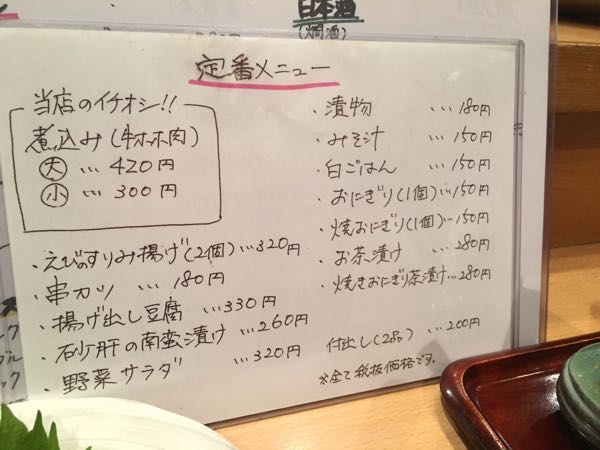 日本酒
(燗酒)
定番メニュー
当店のイチオシ!!
煮込み(牛ホホ肉)
大 … 420円
小 … 300円
・えびのすりみ揚げ(2個)…320円
・串カツ … 180円
・揚げ出し豆腐 …330円
・砂肝の南蛮漬け …260円
・野菜サラダ …320円
・漬物 … 180円
・みそ汁 … 150円
・白ごはん … 150円
・おにぎり(1個)…150円
・焼おにぎり(1個)…150円
・お茶漬け …280円
・焼きおにぎり茶漬け…280円
付出し(2品) …200円
※全て税抜価格です。